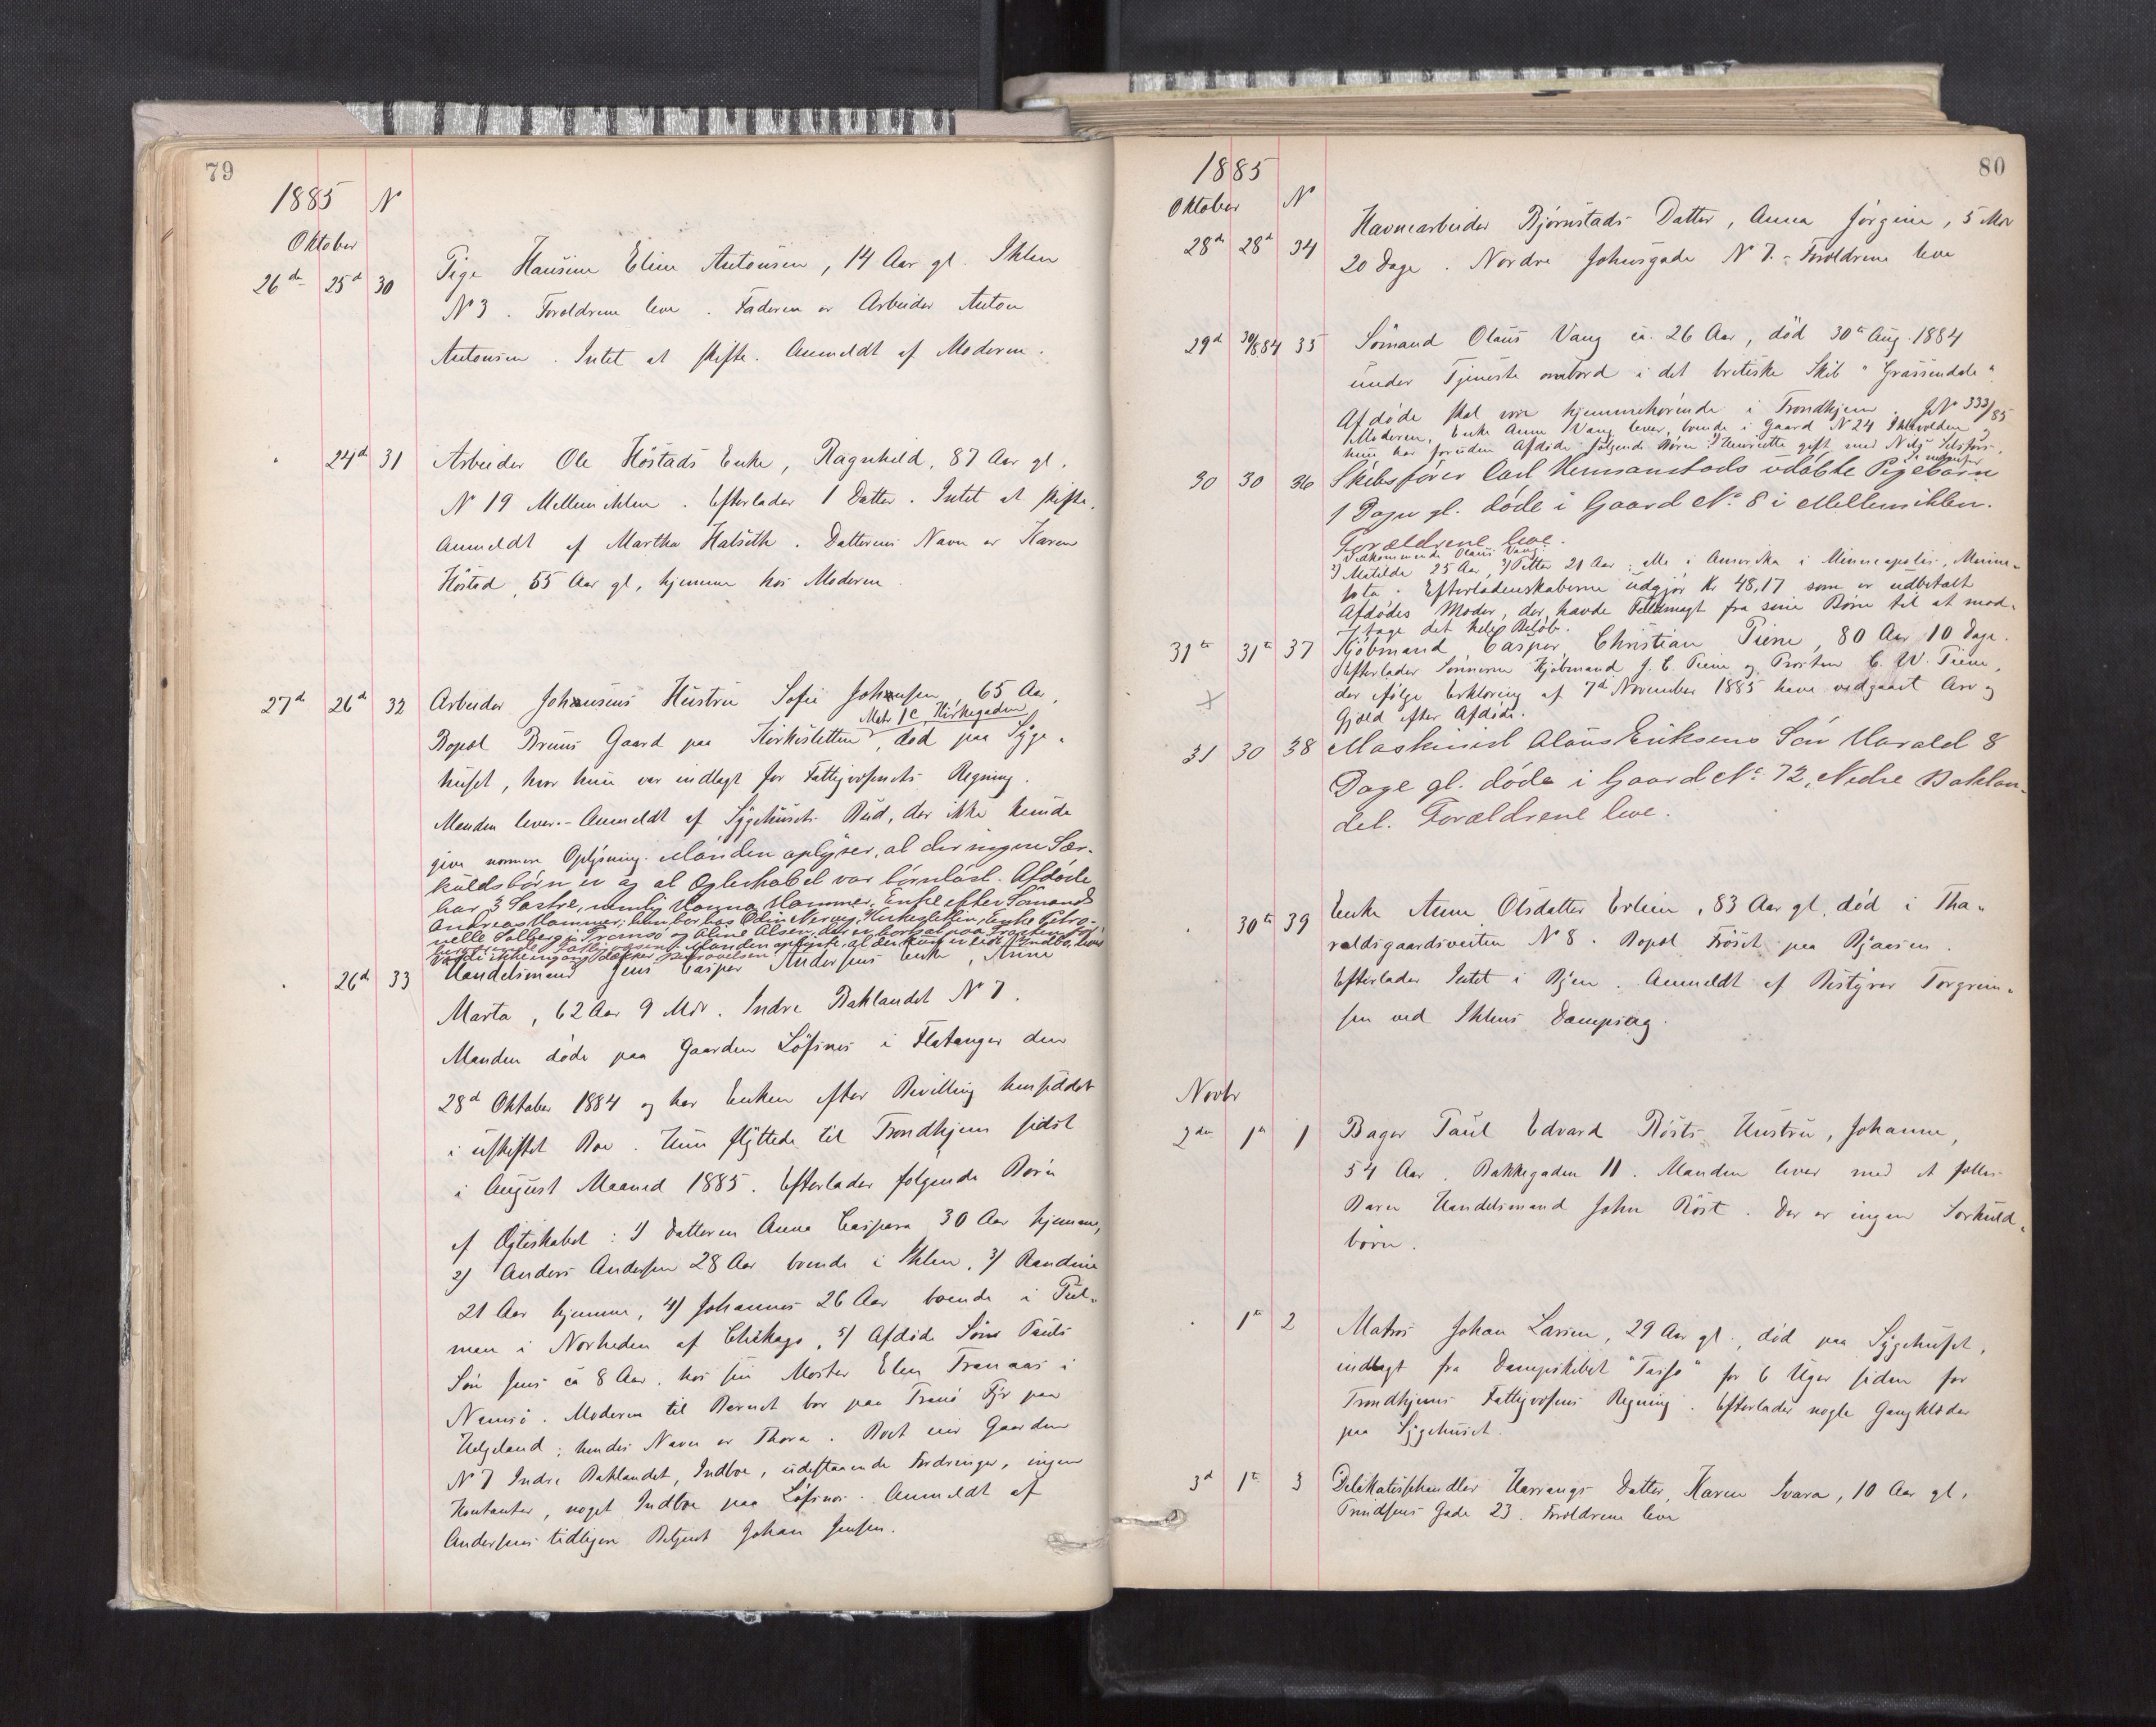 79
1885 N
Oktober
26de 25d 30 Pige Hansine Eline Antonsen, 14 Aar gl. Ihlen
N 3. Forældrene leve. Faderen er Arbeider Anton
Antonsen. Intet at skifte. Anmeldt af Moderen.
24d 31 Arbeider Ole Höstads Enke, Ragnhild, 87 Aar gl.
N 19 Mellemihlen. Efterlader 1 Datter. Intet at skifte.
Anmeldt af Martha Halseth. Datterens Navn er Karen
Höstad, 55 Aar gl, hjemme hos Moderen.
27d 26d 32 Arbeider Johansens Hustru Sofie Johansen, 65 Aar,
Matr 1c Kirkegaden
Bopæl Bruns Gaard paa Kirkesletten, död paa Syge-
huset, hvor hun var indlagt for Fattigvæsenets Regning.
Manden lever. - Anmeldt af Sygehusets Bud, der ikke kunde
give nærmere Oplysning. Manden oplyser, at der ingen Sær-
kuldsbörn er og at Ægteskabet var börnlöst. Afdöde
har 3 Søstre, nemlig Hanna Hammer, Enke efter Sömand
Andreas Hammer; hun bor hos Odin Nervig, Kirkesletten, Enke Petro-
nelle Solberg i Tromsö og Aline Olsen, der er bortsat paa Frosten for
Fattigvæsen. Manden opgiver, at der kun er lidt Indbo, hvis
Værdi ikke engang dækker Begravelsen.
26d 33 Handelsmand Jens Casper Andersens Enke, Anne
Marta, 62 Aar 9 Mdr. Indre Baklandet N 7.
Manden döde paa Gaarden Löfsnes i Flatanger den
28d Oktober 1884 og har Enken efter Bevilling hensiddet
i uskiftet Bo. Hun flyttede til Trondhjem sidst
i August Maaned 1885. Efterlader fölgende Börn
af Ægteskabet: 1) Datteren Anna Caspara 30 Aar hjemme,
2) Anders Andersen 28 Aar boende i Ihlen, 3) Randine
21 Aar hjemme, 4) Johannes 26 Aar boende i Pul-
man i Nærheden af Chikago, 5) Afdöde Söns Pauls
Sön Jens ca 8 Aar, hos sin Moster Elen Tranaas i
Namsö. Moderen til Barnet bor paa Tranö Fyr paa
Helgeland; hendes Navn er Thora. Boet eier Gaarden
N 7 Indre Baklandet, Indboe, udestaaende Fordringer, ingen
Kontanter, noget Indboe paa Löfsnes. Anmeldt af
Andersens tidligere Betjent Johan Jensen.
80
1885
Oktober N
28d 28d 34 Havnearbeider Björnstads Datter, Anna Jörgine, 5 Mdr
20 Dage. Nordre Johnsgade N 7. - Forældrene leve
29d 30/8 84 35 Sömand Olaus Vang ca. 26 Aar, död 30te Aug. 1884
under Tjeneste ombord i det britiske Skib "Grassendale"
Afdöde skal være hjemmehörende i Trondhjem. JN 333/85
Moderen, Enke Anne Vang lever, boende i Gaard N 24 Ihlevolden og
hun har foruden Afdöde fölgende Börn: 1) Henriette gift med Nils
30 30 36 Skibsförer Carl Hermanstads udöbte Pigebarn
1 Dage gl. döde i Gaard No 8 i Mellemihlen.
Forældrene leve.
Vedkommende Olaus Vang:
2) Matilde 25 Aar, 3) Petter 21 Aar: Alle i Amerika i Minneapolis, Minne-
sota. Efterladenskaberne udgjör Kr 48,17 som er udbetalt
Afdödes Moder, der havde Fuldmagt fra sine Börn til at mod-
tage det hele Belöb.
31te 31te 37 Kjöbmand Casper Christian Piene, 80 Aar 10 Dage.
Efterlader Sönnerne Kjöbmand J. C. Piene og Presten C. W. Piene,
der ifölge Erklæring af 7d November 1885 have vedgaaet Arv og
Gjæld efter Afdöde.
31 30 38 Maskinist Olaus Eriksens Sön Harald 8
Dage gl. döde i Gaard No 72, Nedre Baklan-
det. Forældrene leve.
30te 39 Enke Anne Olsdatter Erlien, 83 Aar gl, död i Tha-
raldsgaardsveiten N 8. Bopæl Fröset paa Byaasen.
Efterlader Intet i Byen. Anmeldt af Bestyrer Torgrim-
sen ved Ihlens Dampsag.
Novbr
2den 1te 1 Bager Paul Edvard Rösts Hustru, Johanne,
54 Aar. Bakkegaden 11. Manden lever med et fælles
Barn Handelsmand John Röst. Der er ingen Særkuld-
börn.
1te 2 Matros Johan Larsen, 29 Aar gl., död paa Sygehuset,
indlagt fra Dampskibet "Tasso" for 6 Uger siden for
Trondhjems Fattigvæsens Regning. Efterlader nogle Gangklæder
paa Sygehuset.
3d 1te 3 Delikatessehandler Harrangs Datter, Karen Ivara, 10 Aar gl.
Trindsens Gade 23. Forældrene leve